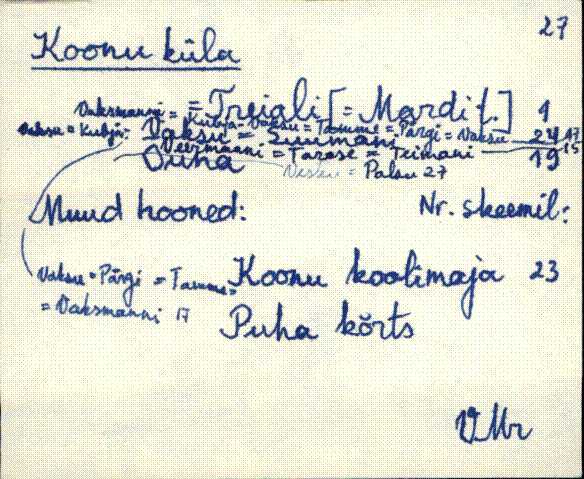 27
Koonu küla
Vaksmanni = = Treiali [= Mardi t.] 1
Vaksu = Kubja = Kubja = Vaksu = Tamme = Pärgi = Vaksu 17
Vaksu = Suumani 24
Veermanni = Tarase = Teimani 15
Puha 19
Vesku = Palsu 27
Muud hooned: Nr. skeemil:
Vaksu = Pärgi = Tamme = Koonu koolimaja 23
= Vaksmanni 17
Puha kõrts
VMr